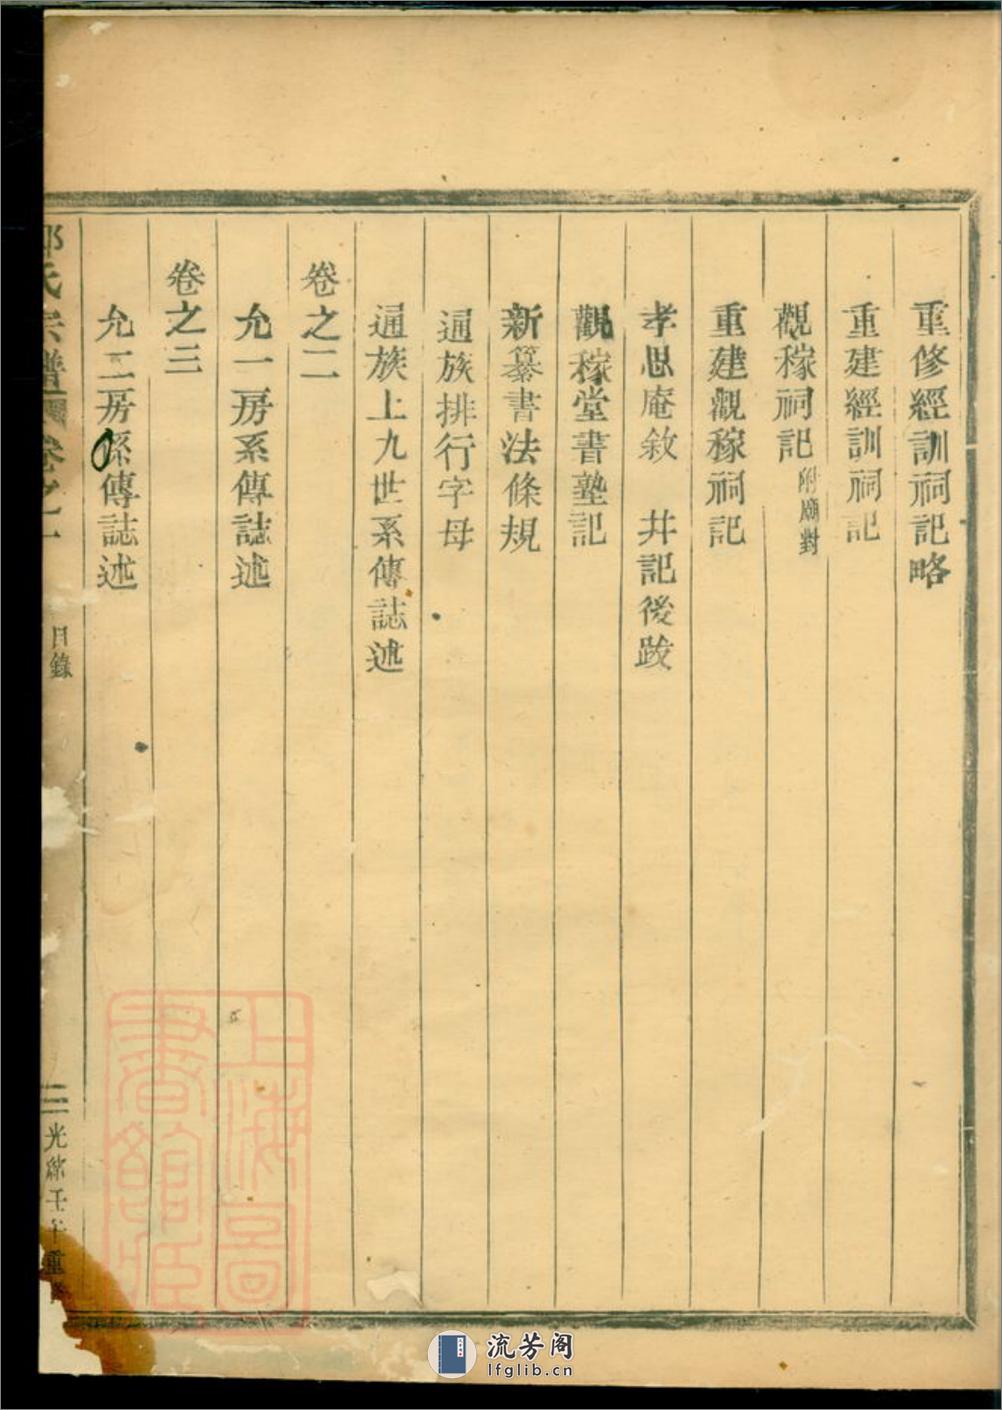 重修經訓祠記略
重建經訓祠記
觀稼祠記 附廟對
重建觀稼祠記
孝思庵敘 井記後跋
觀稼堂書塾記
新纂書法條規
通族排行字母
通族上九世系傳誌述
卷之二
允一房系傳誌述
卷之三
允二房系傳誌述
氏宗譜 卷之一 目錄 三 光緒壬午重
上海圖書館藏
流芳阁
lfglib.cn